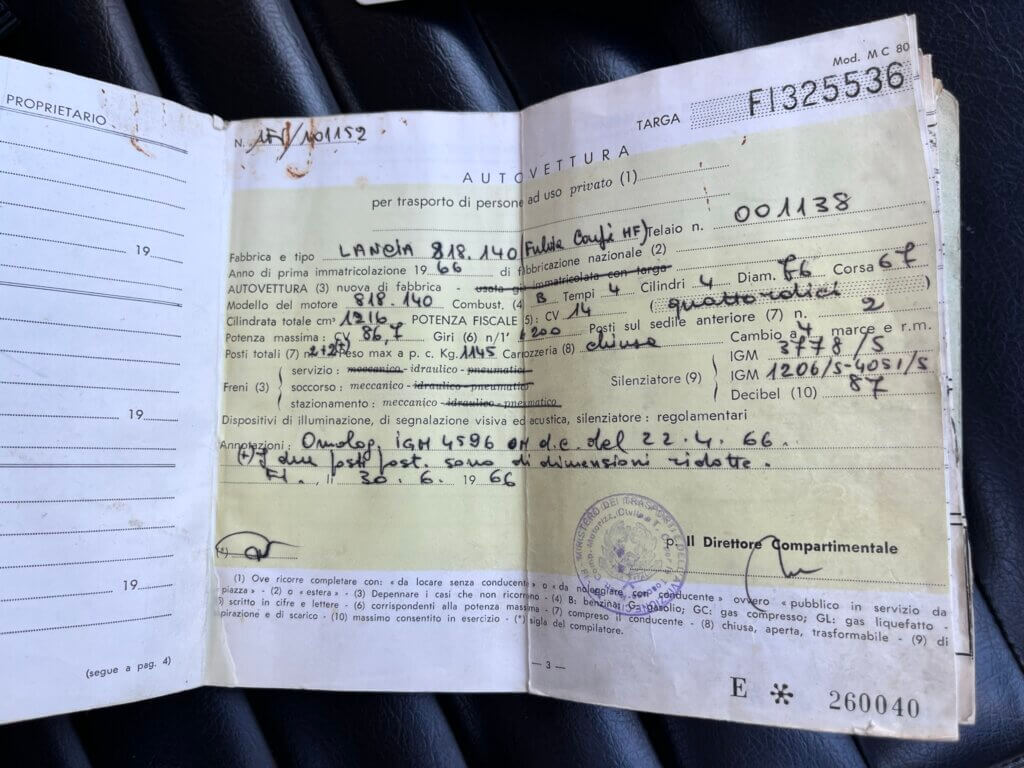 PROPRIETARIO
19
19
19
(segue a pag. 4)
Mod. MC 80
TARGA FI325536
N. /101152
AUTOVETTURA
per trasporto di persone ad uso privato (1)
Fabbrica e tipo LANCIA 818.140 (Fulvia Coupé HF) Telaio n. 001138
Anno di prima immatricolazione 1966 di fabbricazione nazionale (2)
AUTOVETTURA (3) nuova di fabbrica - usata già immatricolata con targa
Modello del motore 818.140 Combust. (4) B Tempi 4 Cilindri 4 Diam. 76 Corsa 67
Cilindrata totale cm³ 1216 POTENZA FISCALE (5): CV 14 (quattordici)
Potenza massima: CV 86,7 Giri (6) n/1' 6200 Posti sul sedile anteriore (7) n. 2
Posti totali (7) n. 2+2(+) Peso max a p. c. Kg. 1145 Carrozzeria (8) chiusa Cambio a 4 marce e r.m.
Freni (3) servizio: meccanico - idraulico - pneumatico
soccorso: meccanico - idraulico - pneumatico
stazionamento: meccanico - idraulico - pneumatico
Silenziatore (9) IGM 3778/S
IGM 1206/S-4051/S
Decibel (10) 87
Dispositivi di illuminazione, di segnalazione visiva ed acustica, silenziatore: regolamentari
Annotazioni: Omolog. IGM 4596 OM d.c. del 22.4.66.
(+) I due posti post. sono di dimensioni ridotte.
FI. , li 30.6. 1966
(*)
MINISTERO DEI TRASPORTI E DELL'
p. Il Direttore Compartimentale
(1) Ove ricorre completare con: « da locare senza conducente » o « da noleggiare con conducente » ovvero « pubblico in servizio da
piazza » - (2) o « estera » - (3) Depennare i casi che non ricorrono - (4) B: benzina; G: gasolio; GC: gas compresso; GL: gas liquefatto -
scritto in cifre e lettere - (6) corrispondenti alla potenza massima - (7) compreso il conducente - (8) chiusa, aperta, trasformabile - (9) di
aspirazione e di scarico - (10) massimo consentito in esercizio - (*) sigla del compilatore.
— 3 —
E * 260040